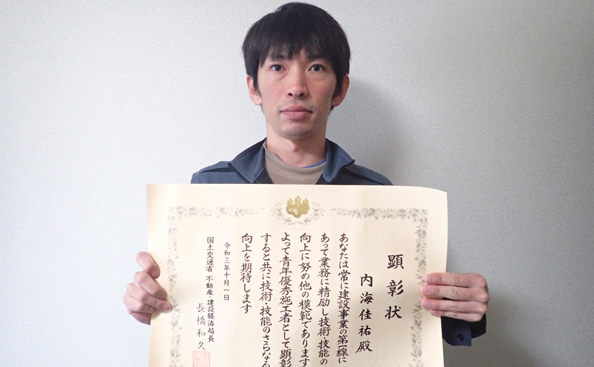 顕彰状
内海佳祐殿
あなたは常に建設事業の第一線に
あって業務に精励し技術・技能の
向上に努め他の模範であります
よって青年優秀施工者として顕彰
すると共に技術・技能のさらなる
向上を期待します
令和三年十月一日
国土交通省 不動産・建設経済局長
長橋和久